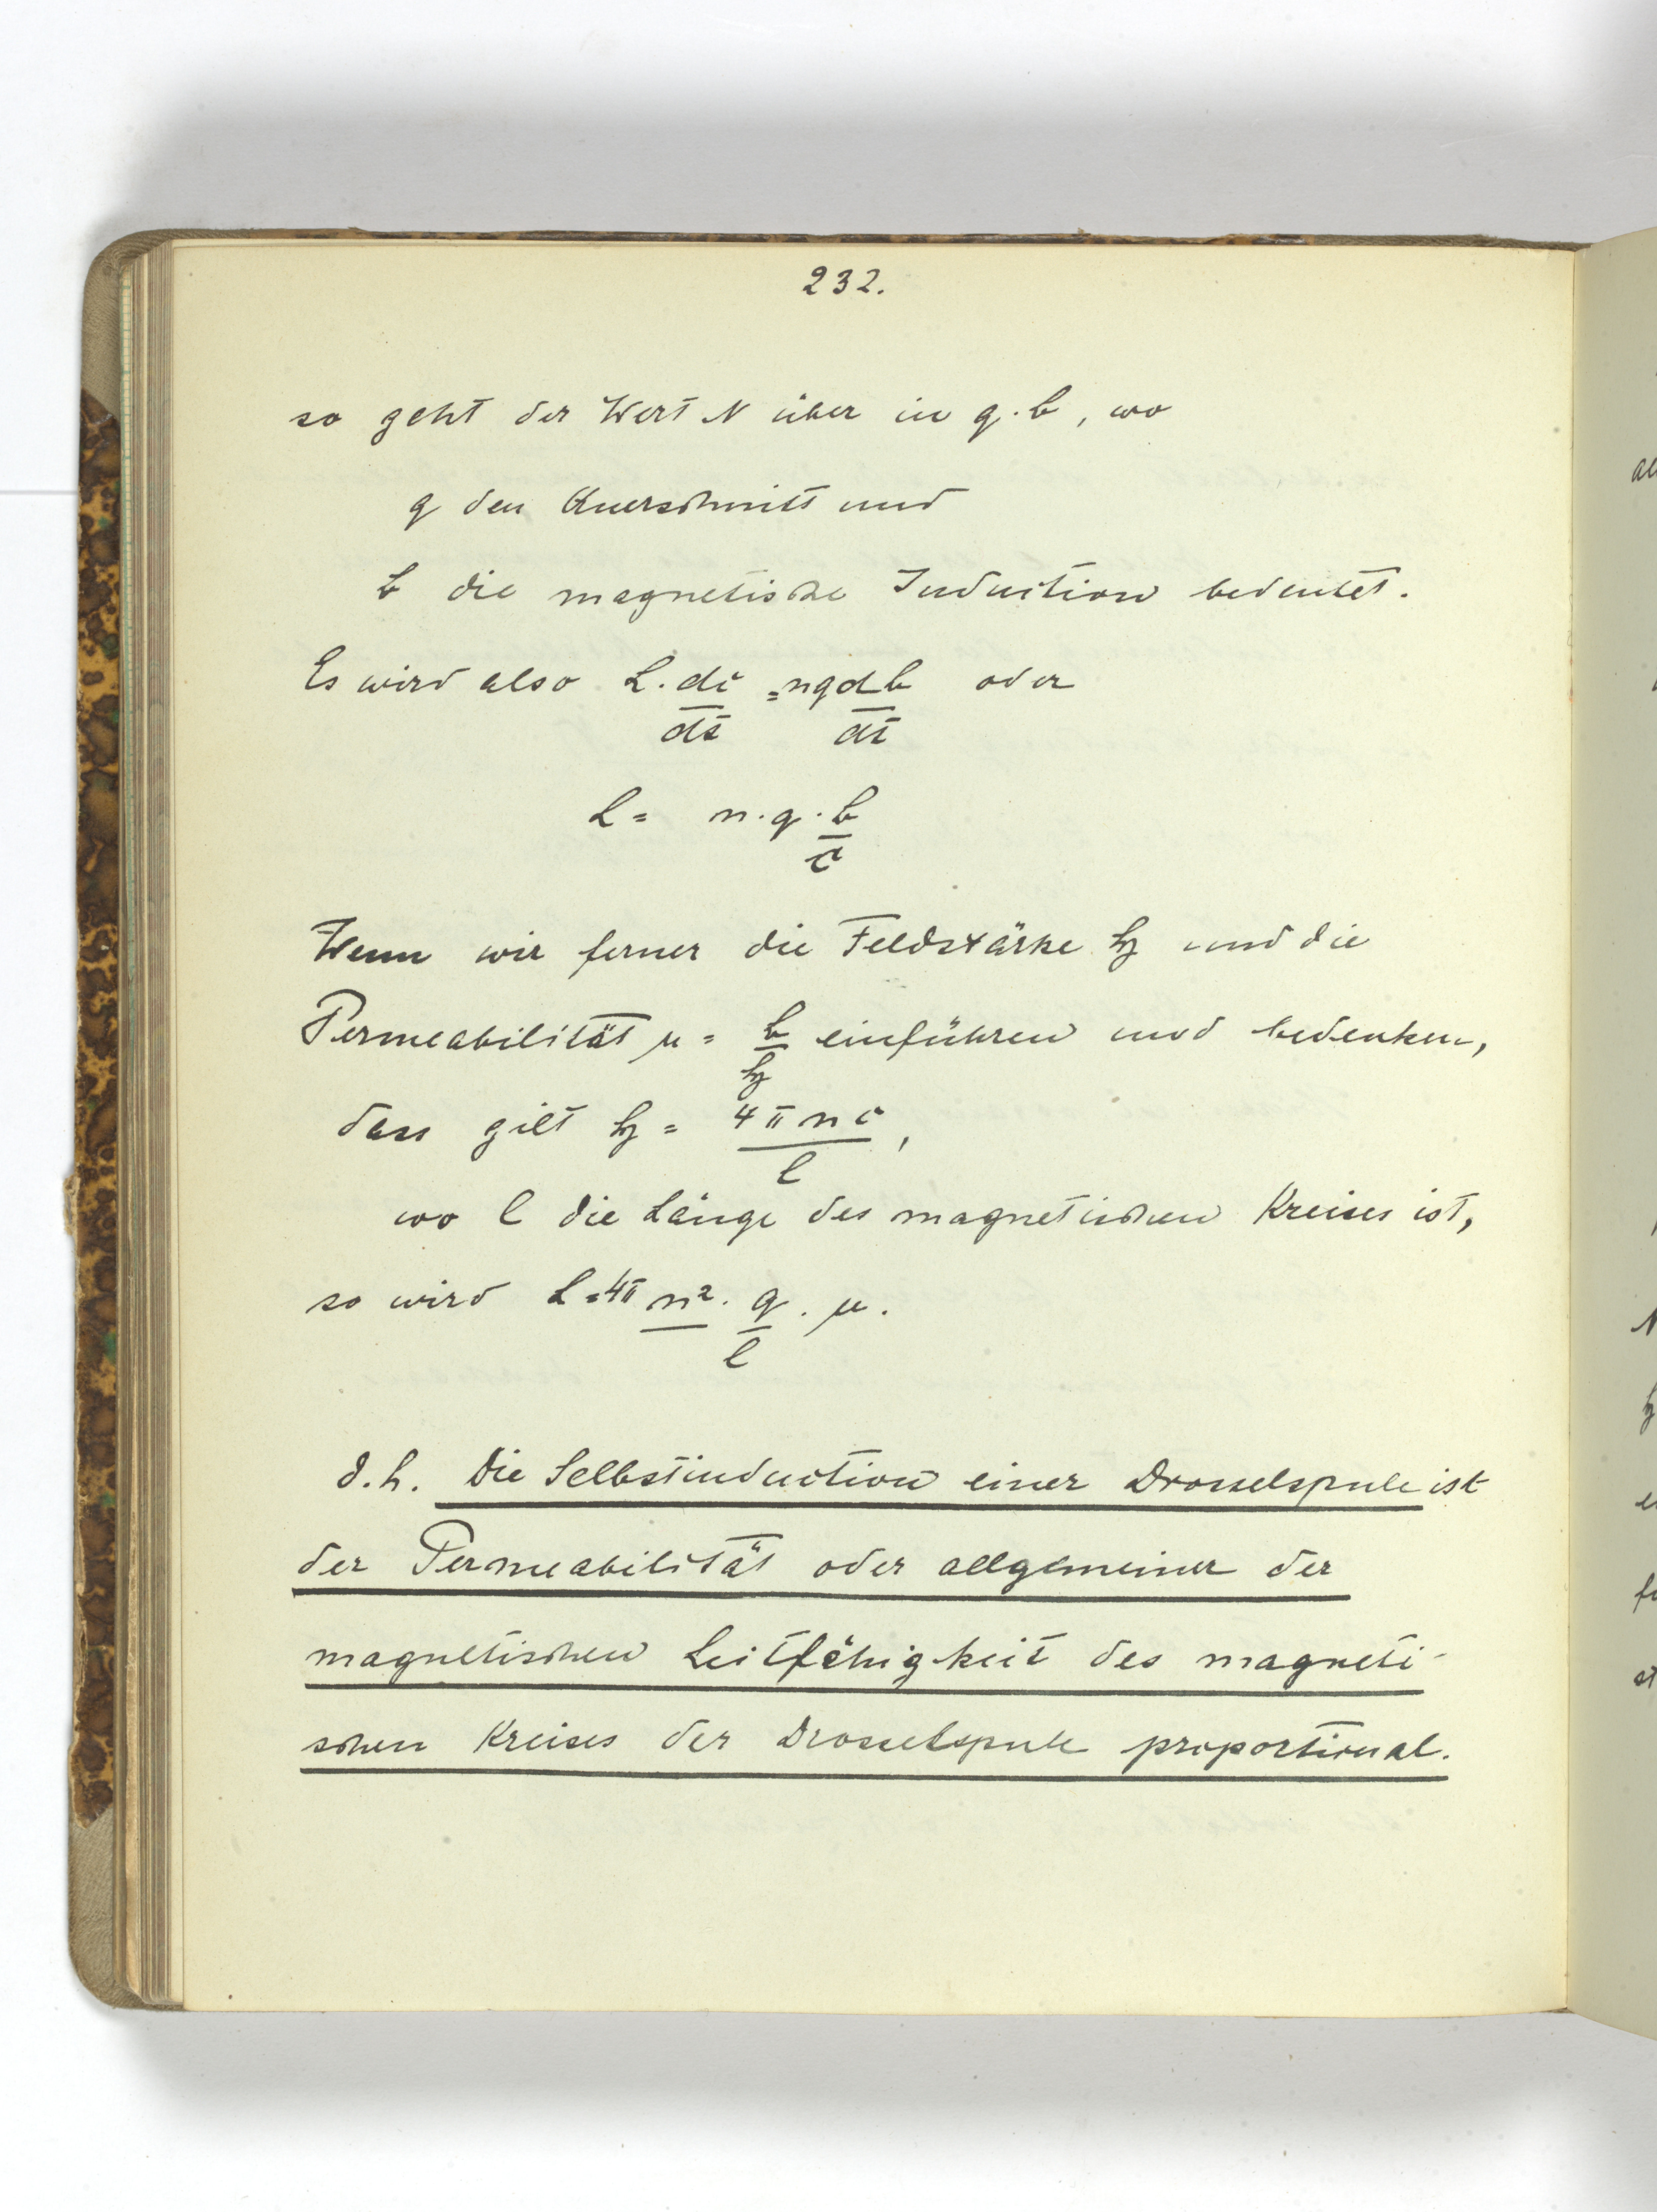 232.
so geht der Wert N über in q·b, wo
q den Querschnitt und
b die magnetische Induction bedeutet.
Es wird also L·di/dt = nqdb/dt oder
L = n·q·b/i
Wenn wir ferner die Feldstärke h und die
Permeabilität µ = b/h einführen und bedenken,
dass gilt h = 4πni/l,
wo l die Länge des magnetischen Kreises ist,
so wird L=4π n²·q/l·µ.
d.h. Die Selbstinduction einer Drosselspule ist
der Permeabilität oder allgemeiner der
magnetischen Leitfähigkeit des magneti-
schen Kreises der Drosselspule proportional.